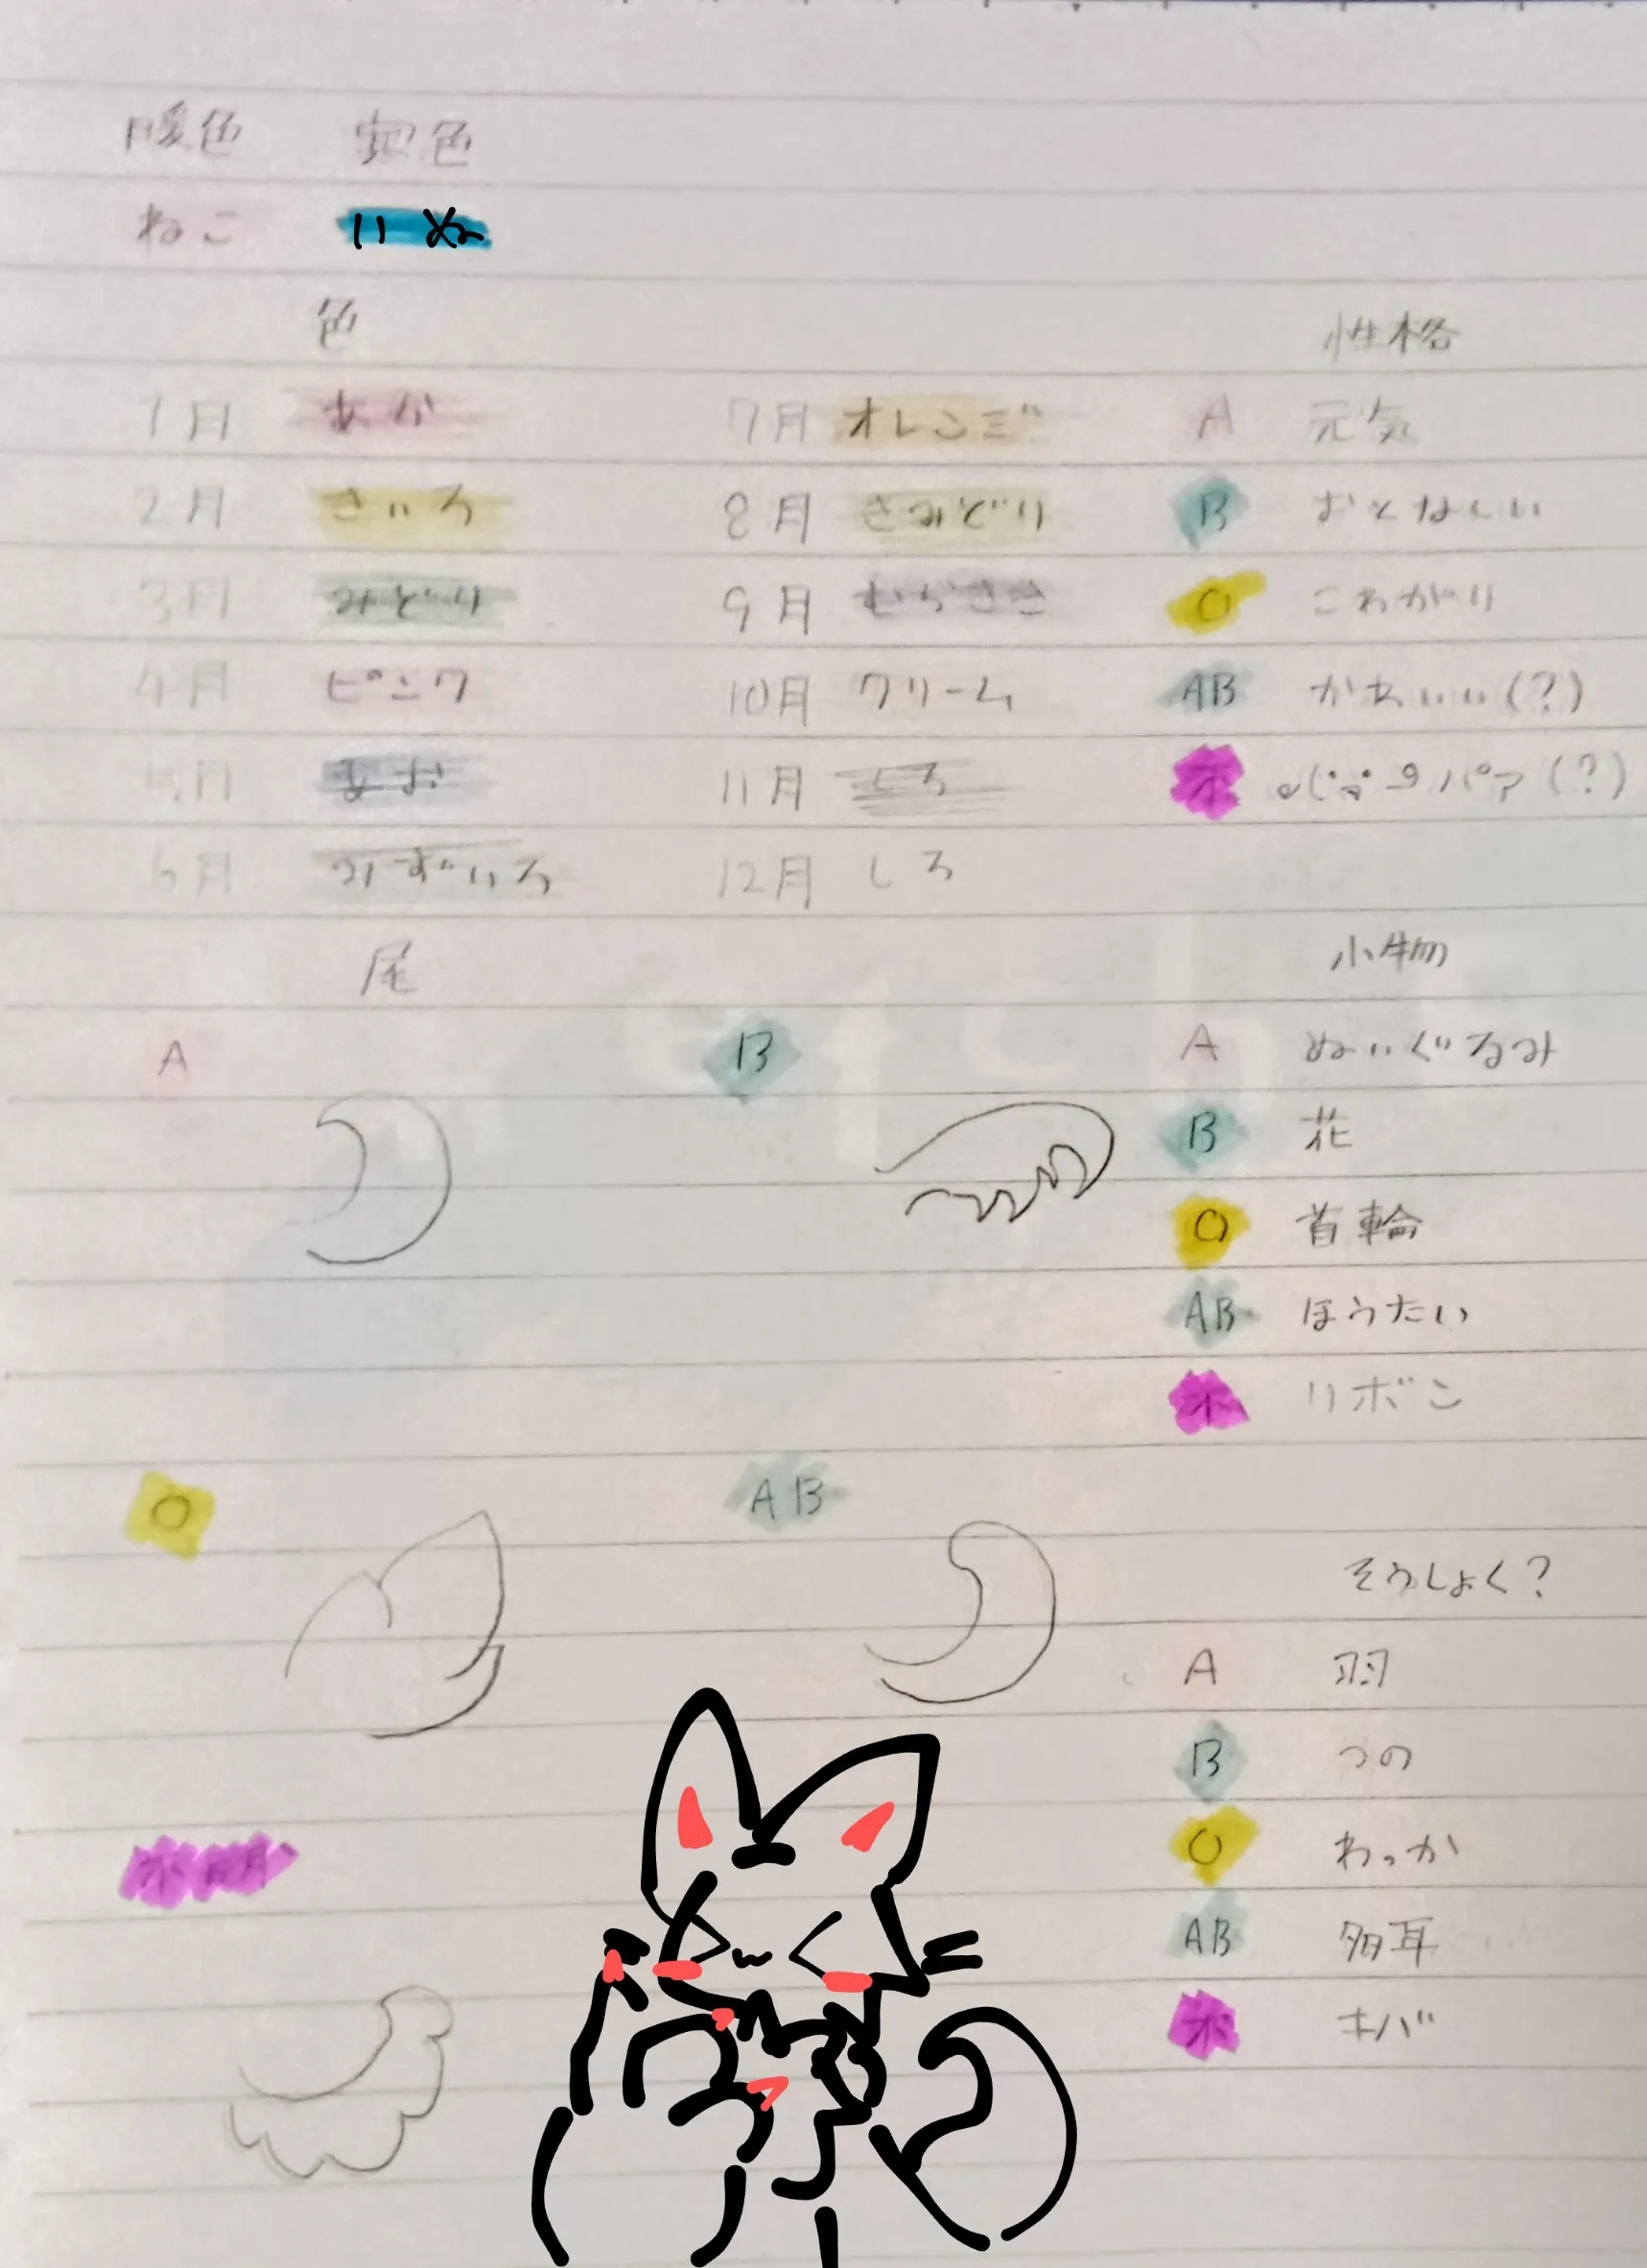 暖色 寒色
ねこ いぬ
色 性格
1月 あか 7月 オレンジ A 元気
2月 きいろ 8月 きみどり B おとなしい
3月 みどり 9月 むらさき O こわがり
4月 ピンク 10月 クリーム AB かわいい(?)
5月 あお 11月 しろ 不 パァ(?)
6月 みずいろ 12月 しろ
尾 小物
A B A ぬいぐるみ
B 花
O 首輪
AB ほうたい
不 リボン
O AB
そうしょく?
A 羽
B つの
O わっか
不明
AB 多耳
不 キバ